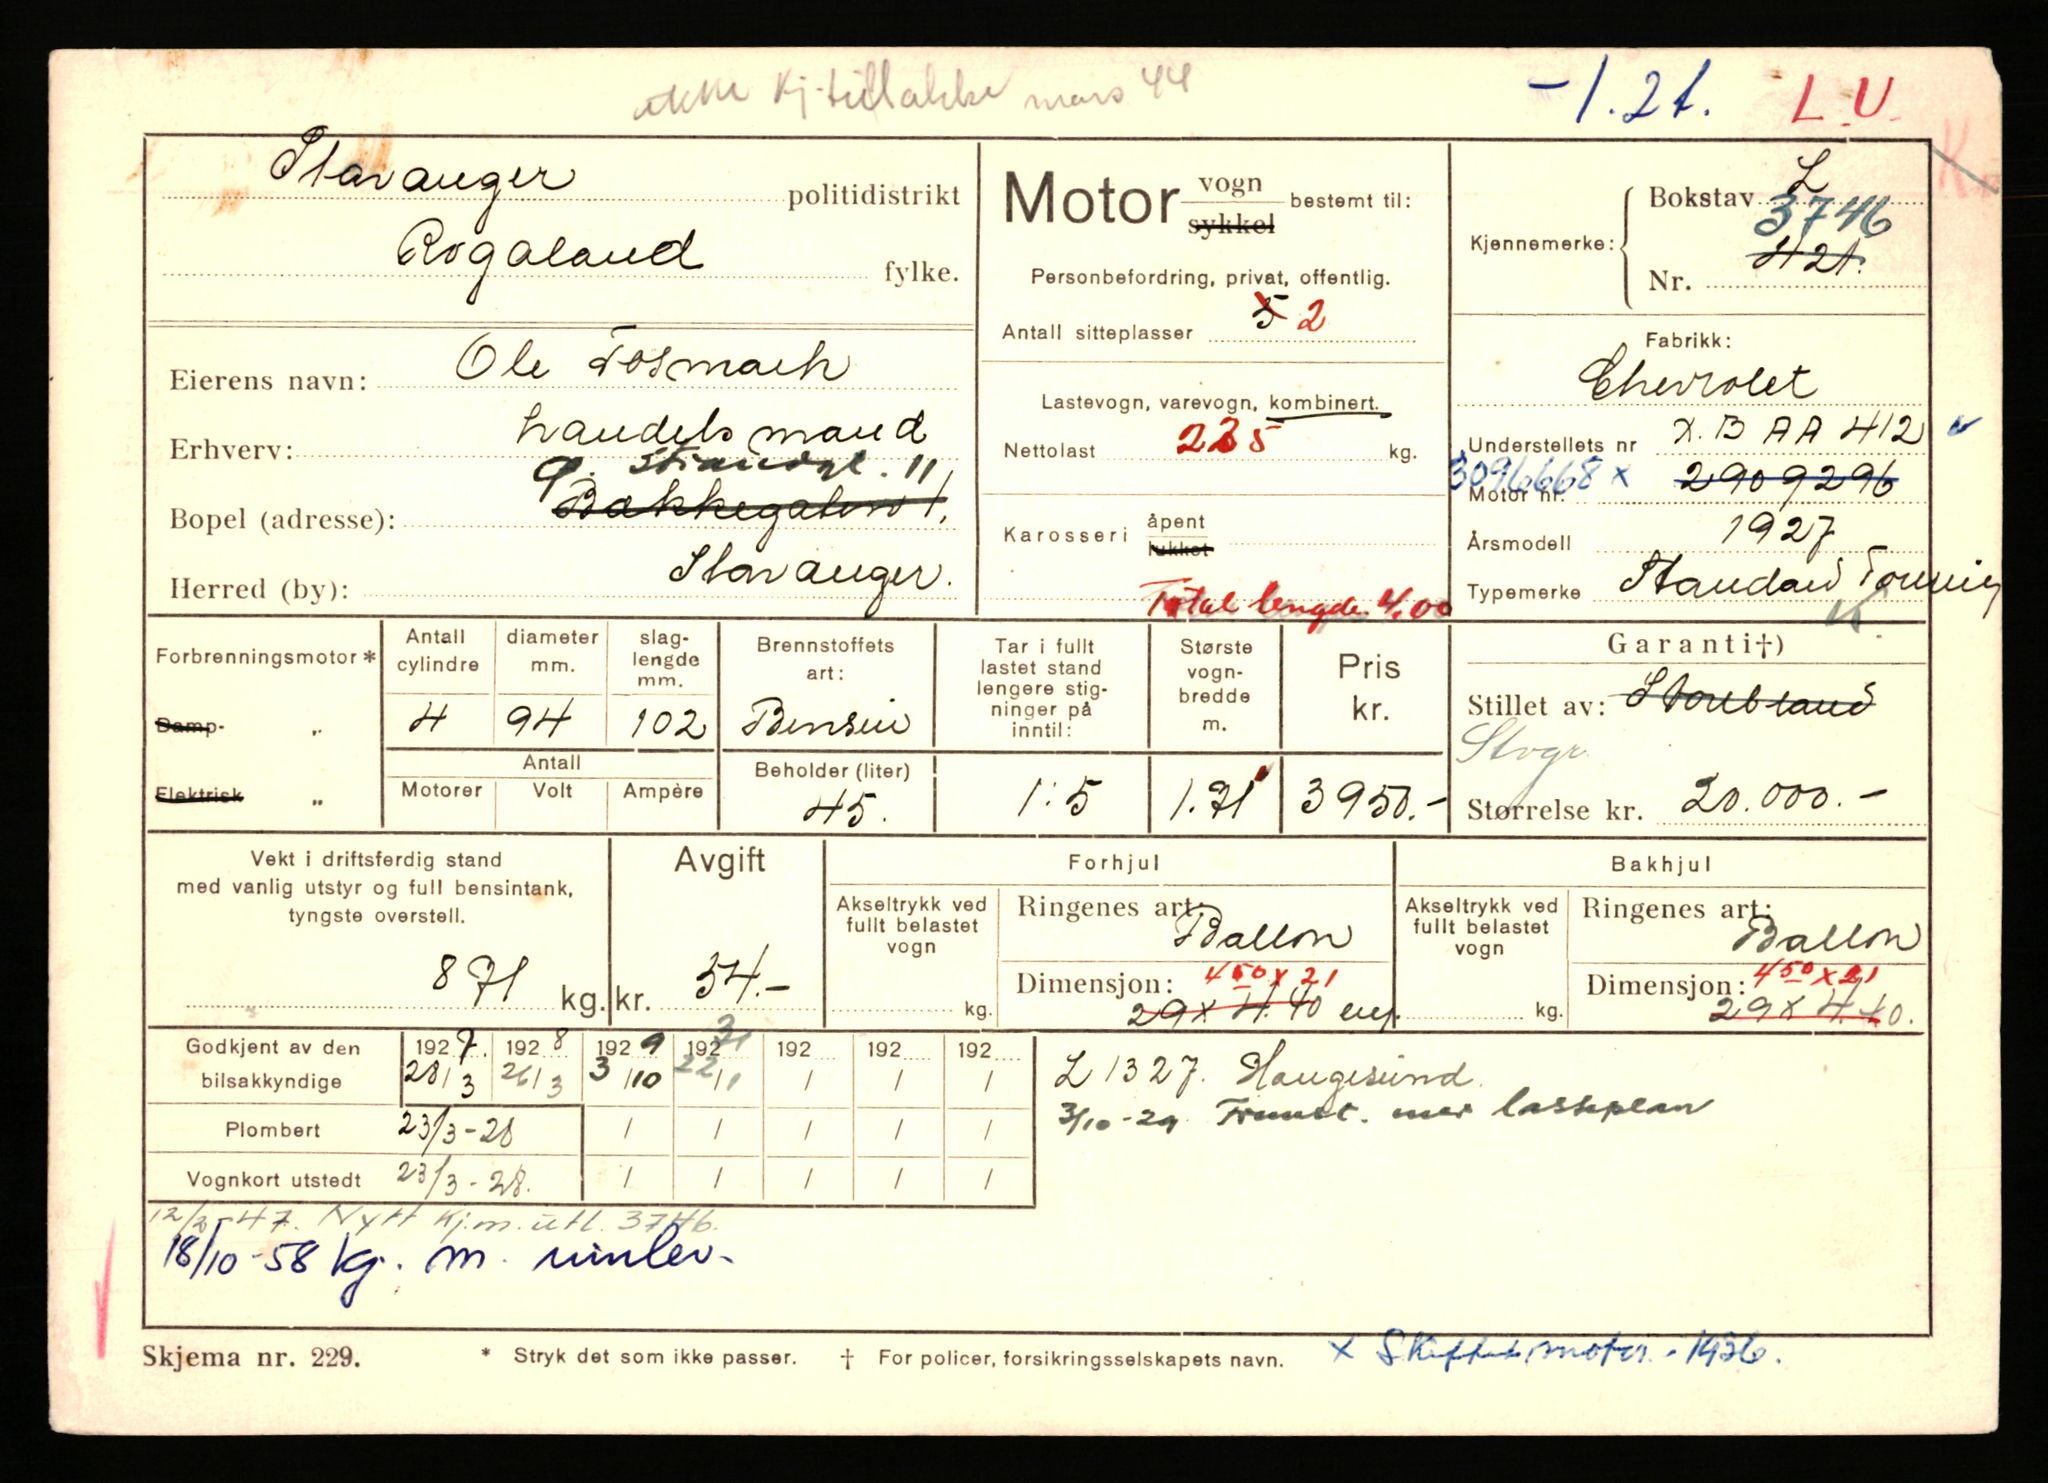 Kj. tillatelse mars 44
-1.21. L.U.
Stavanger politidistrikt
Rogaland fylke.
Eierens navn: Ole Tosmach
Erhverv: handelsmand
Ø. Strandgt. 11
Bopel (adresse): Bakkegaten 1,
Herred (by): Stavanger.
Motor vogn sykkel bestemt til:
Personbefordring, privat, offentlig.
Antall sitteplasser 5 2
Lastevogn, varevogn, kombinert.
Nettolast 225 kg.
Karosseri åpent lukket
Total lengde 4.00
Kjennemerke: Bokstav L
3746
Nr. 421.
Fabrikk:
Chevrolet
Understellets nr X.B AA 412
3096668 x
Motor nr. 2909296
Årsmodell 1927
Typemerke Standard Touring
Forbrenningsmotor *
Damp- „
Elektrisk „
Antall cylindre 4
diameter mm. 94
slaglengde mm. 102
Antall
Motorer Volt Ampère
Brennstoffets art: Bensin
Beholder (liter) 45.
Tar i fullt lastet stand lengere stigninger på inntil: 1:5
Største vognbredde m. 1.71
Pris kr. 3950.-
Garanti†)
Stillet av: Storebrand
Stvgr.
Størrelse kr. 20.000.-
Vekt i driftsferdig stand
med vanlig utstyr og full bensintank,
tyngste overstell.
871 kg.
Avgift
kr. 54.-
Forhjul
Akseltrykk ved fullt belastet vogn kg.
Ringenes art: Ballon
Dimensjon: 450 x 21
29 x 4.40 eng.
Bakhjul
Akseltrykk ved fullt belastet vogn kg.
Ringenes art: Ballon
Dimensjon: 450 x 21
29 x 4.40.
Godkjent av den bilsakkyndige
1927. 1928 1929 192 31 192 192 192
28/3 26/3 3/10 22/1 / / /
Plombert 23/3-28 / / / / /
Vognkort utstedt 23/3-28. / / / / /
L 1327. Haugesund.
3/10-29 Fremst. med lasteplan
12/2-47. Nytt kj.m. utl. 3746.
18/10-58 kj. m. innlev.
Skjema nr. 229.
* Stryk det som ikke passer. † For policer, forsikringsselskapets navn.
x Skiftet motor. 1936.